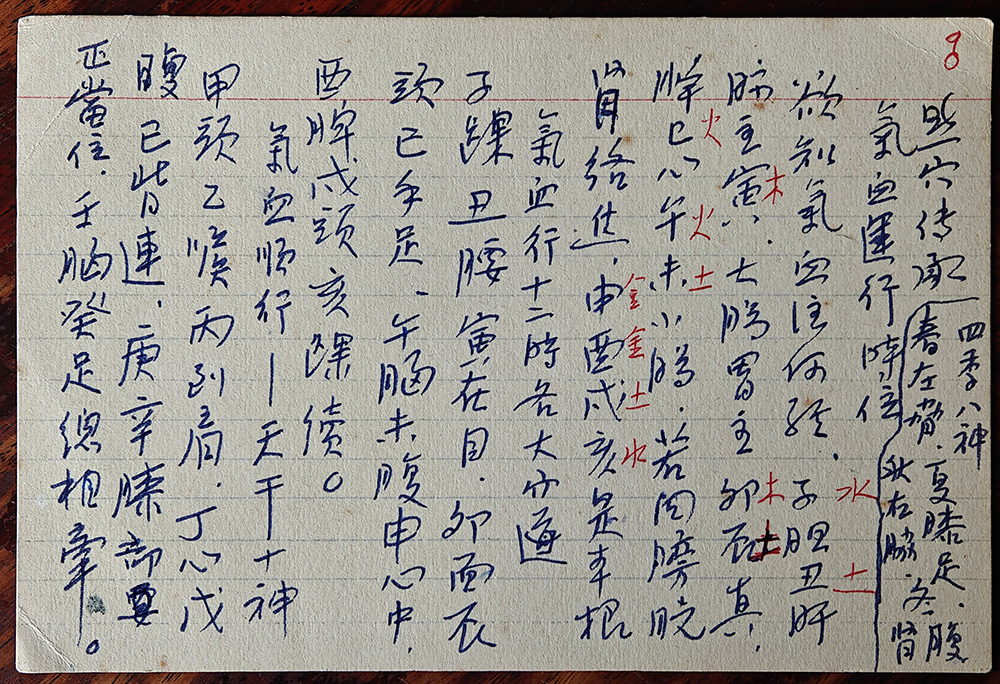 點穴传承
四季八神
春左脅.夏膝足.
秋右脇.冬腹腎
氣血運行時位
水 土
欲知氣血注何经.子胆丑肝
木 木 土
肺主寅.大腸胃主卯辰真,
火 火 土
脾巳心午未小腸.若問膀胱
金 金 土 水
腎络焦,申酉戌亥是本根
氣血行十二時各大穴道
子踝丑腰寅在目.卯面辰
頭巳手足.午脑未腹申心中.
酉脾戌頭亥踝續。
氣血順行—天干十神
甲頭乙喉丙到肩.丁心戊
腹己背連.庚辛膝部要
正當位.壬脑癸足總相牽。